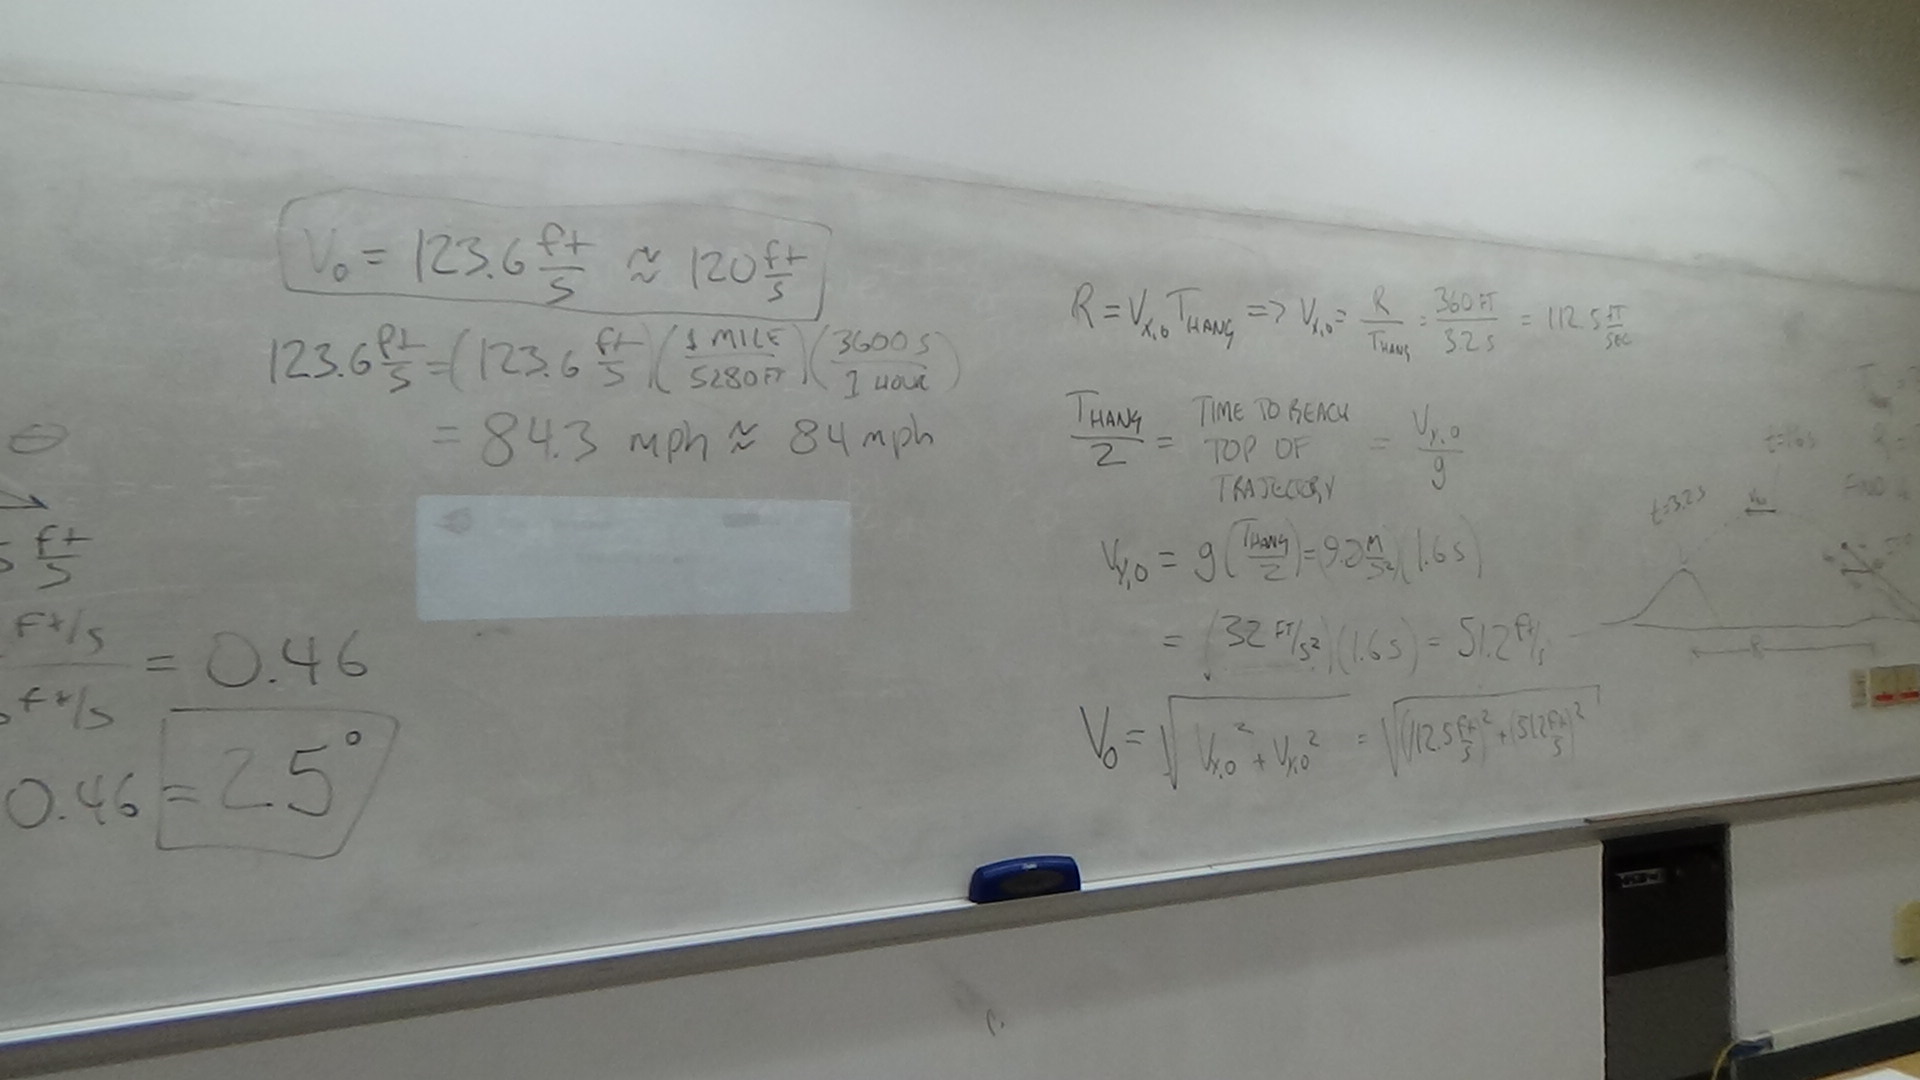 V₀ = 123.6 ft/s ≈ 120 ft/s
123.6 ft/s = (123.6 ft/s)(1 MILE/5280 FT)(3600 s/1 HOUR)
= 84.3 mph ≈ 84 mph
θ
5 ft/s
ft/s / ft/s = 0.46
0.46 = 25°
R = Vx,0 THANG => Vx,0 = R/THANG = 360 FT/3.2 s = 112.5 FT/SEC
THANG/2 = TIME TO REACH TOP OF TRAJECTORY = Vy,0/g
Vy,0 = g(THANG/2) = (9.8 M/s²)(1.6 s)
= (32 FT/s²)(1.6 s) = 51.2 ft/s
V₀ = √(Vx,0² + Vy,0²) = √((112.5 ft/s)² + (51.2 ft/s)²)
t=1.6s
t=3.2s
R